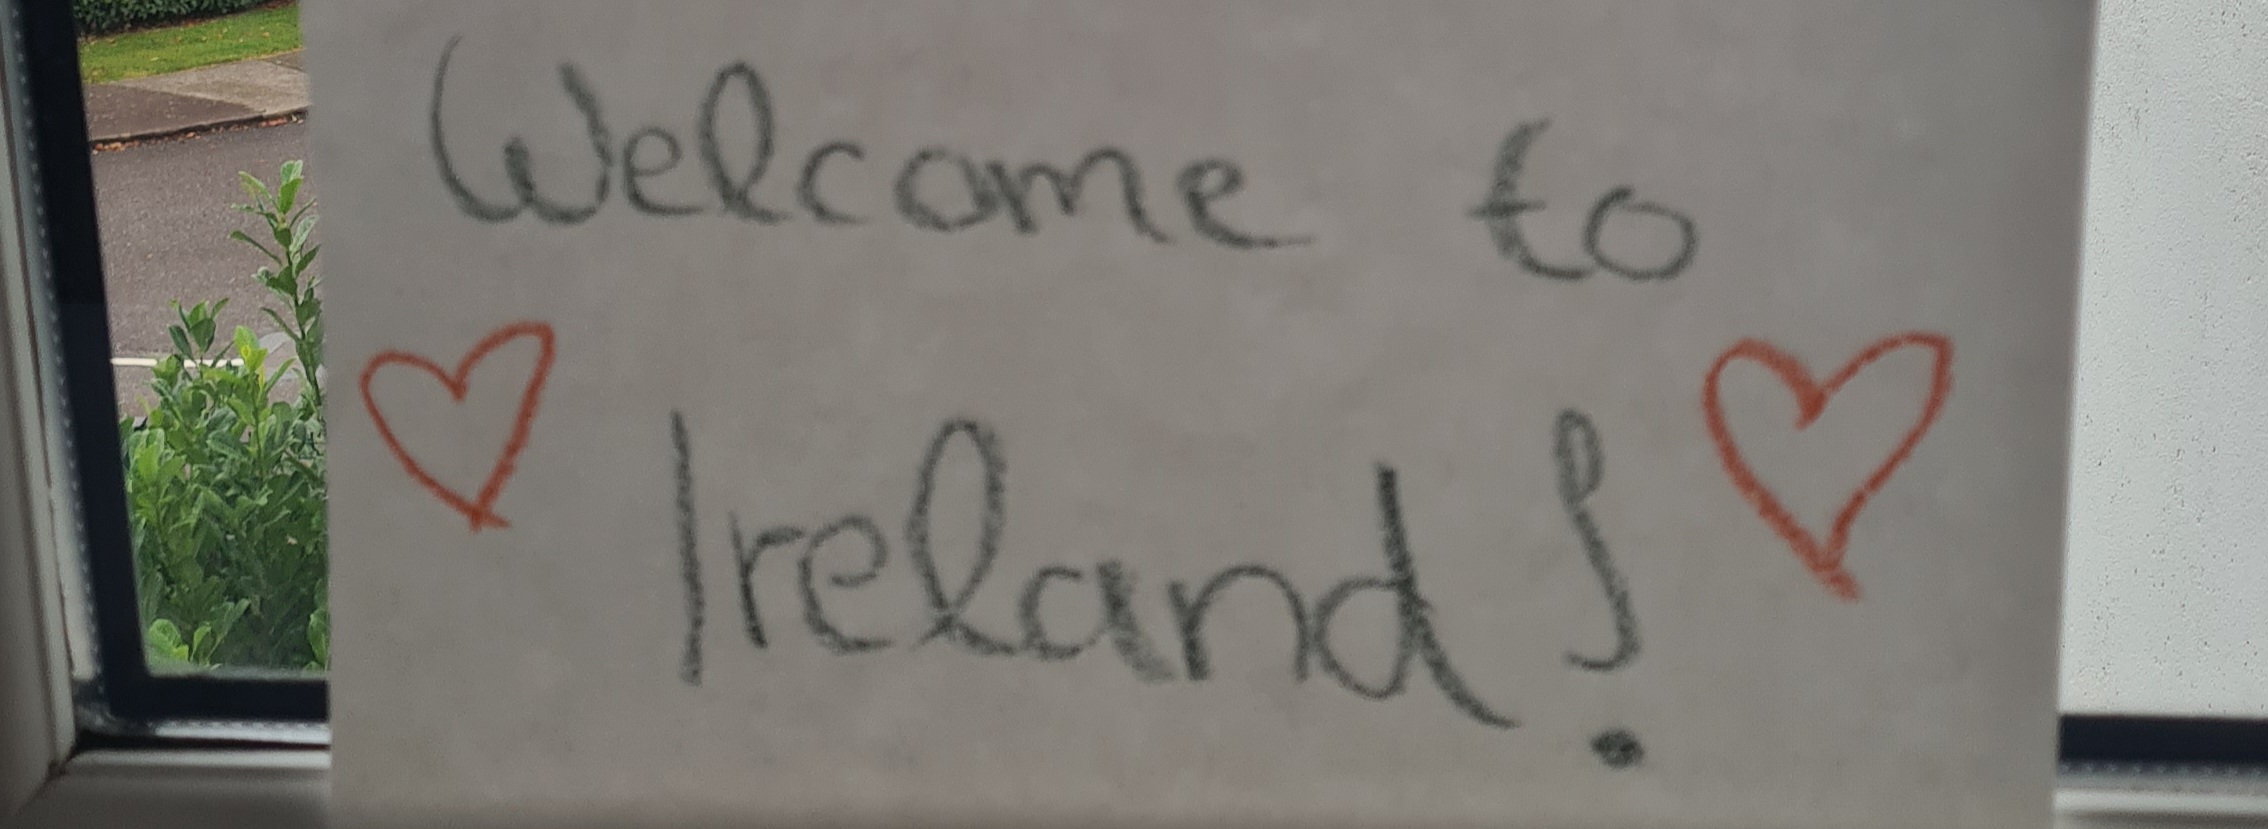 Welcome to
Ireland!